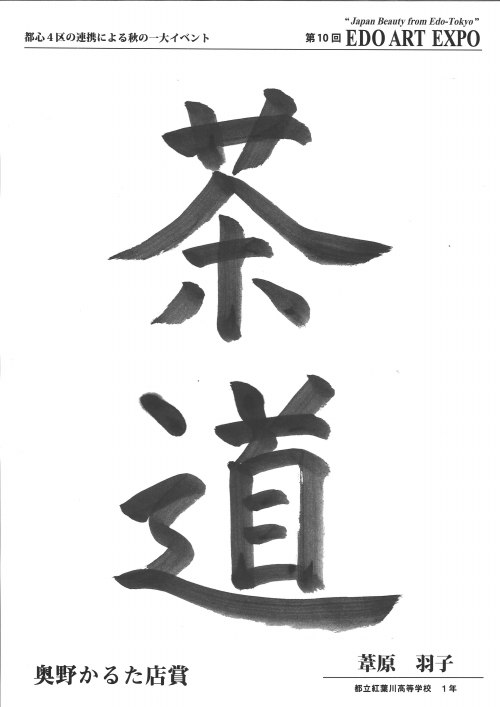 都心4区の連携による秋の一大イベント
“Japan Beauty from Edo-Tokyo”
第10回 EDO ART EXPO
茶道
奥野かるた店賞
葦原 羽子
都立紅葉川高等学校 1年